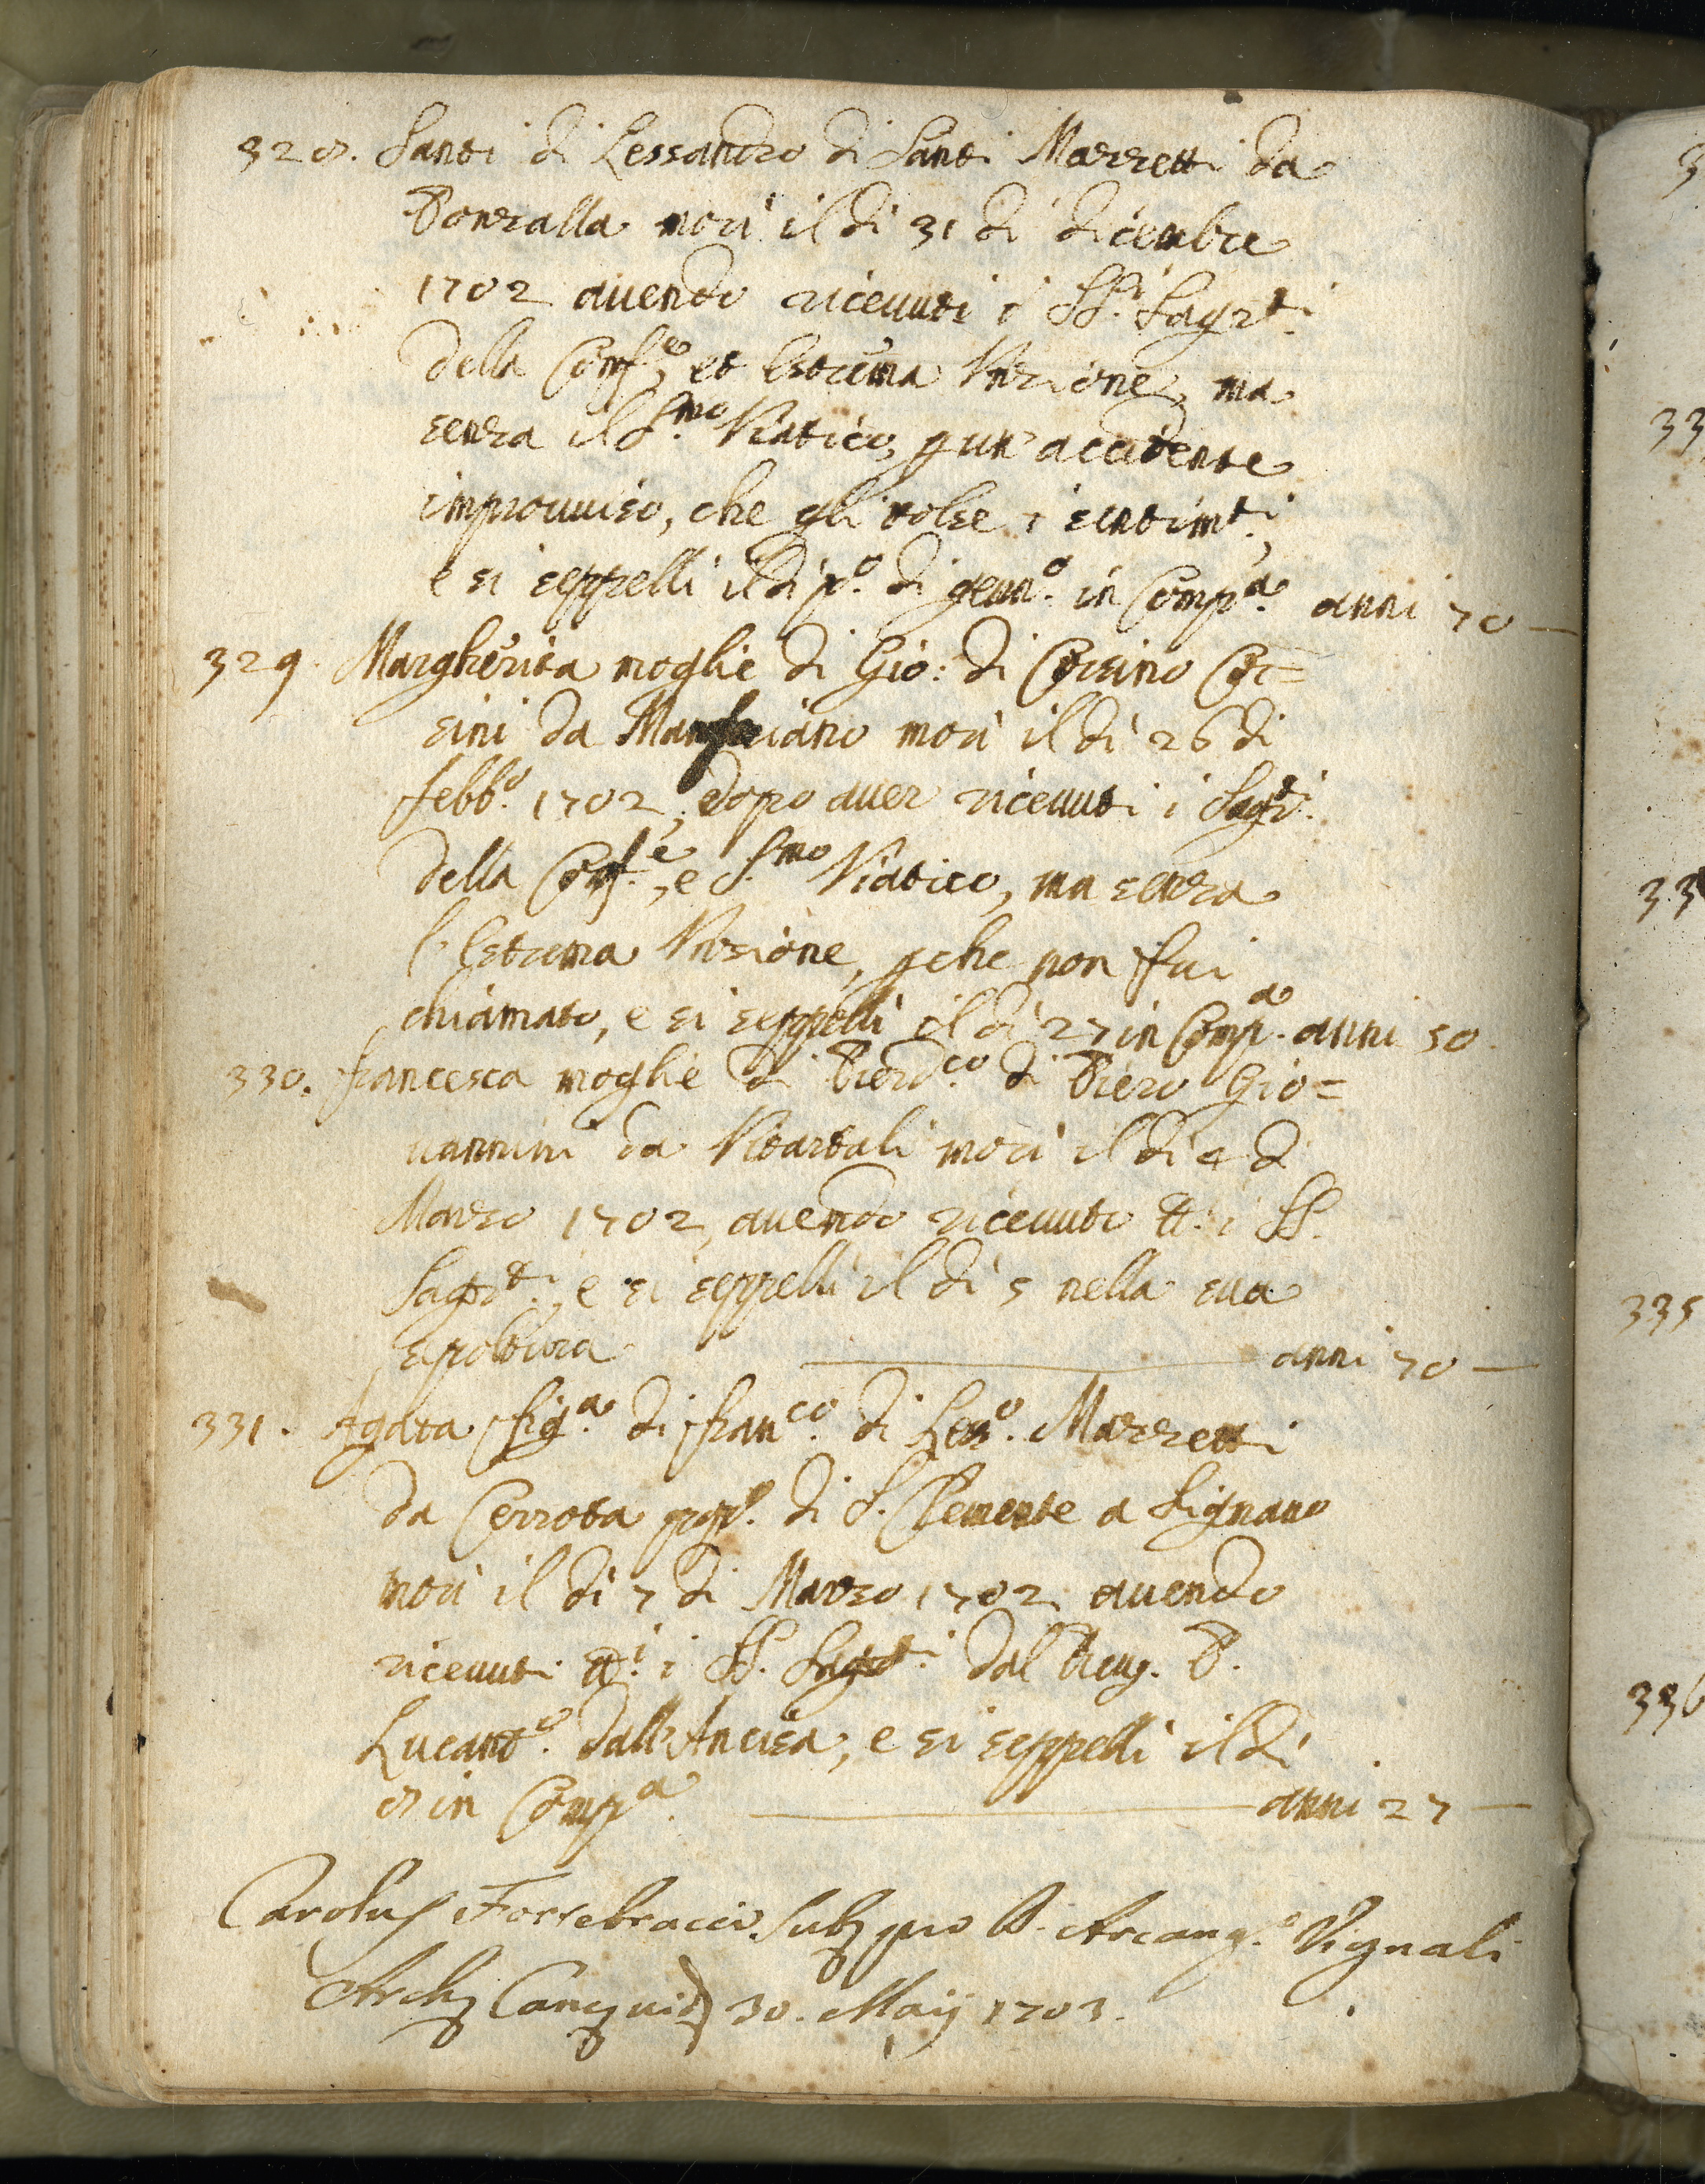 328. Santi di Lessandro di Santi Mazzetti da
Bonzalla morì il dì 31 di dicembre
1702 auendo riceuuti i SS.i Sagr.ti
della Conf.e, et Estrema Vnzione, ma
senza il S.mo Viatico, p un' accidente
improuuiso, che gli tolse i sentim.ti,
e si seppellì il dì p.o di genn.o in Comp.a anni 70
329. Margherita moglie di Gio: di Corsino Cor=
sini da morì il dì 26 di
febb.o 1702, dopo auer riceuuti i Sagr.ti
della Conf.e, e S.mo Viatico, ma senza
l'Estrema Vnzione, pche non fui
chiamato, e si seppellì il dì 27 in Comp.a anni 50.
330. francesca moglie di Pierd.co di Piero Gio=
uannini da Vitartali morì il dì 4 di
Marzo 1702, auendo riceuuto tt.i i SS.
Sagr.ti, e si seppellì il dì 5 nella sua
sepoltura anni 70
331. Agata fig.a di fran.co di Less.o Mazzetti
da Cerrota pop.o di S. Clemente a Signano
morì il dì 7 di Marzo 1702 auendo
riceuuti tt.i i SS. Sagr.ti dal P.
Lucant.o dall'Ancisa, e si seppellì il dì
8 in Comp.a anni 27
Carolus Fortebracci Sub pro D. Arcang.o Vignali
30. Maij 1703.
33
33
335
336